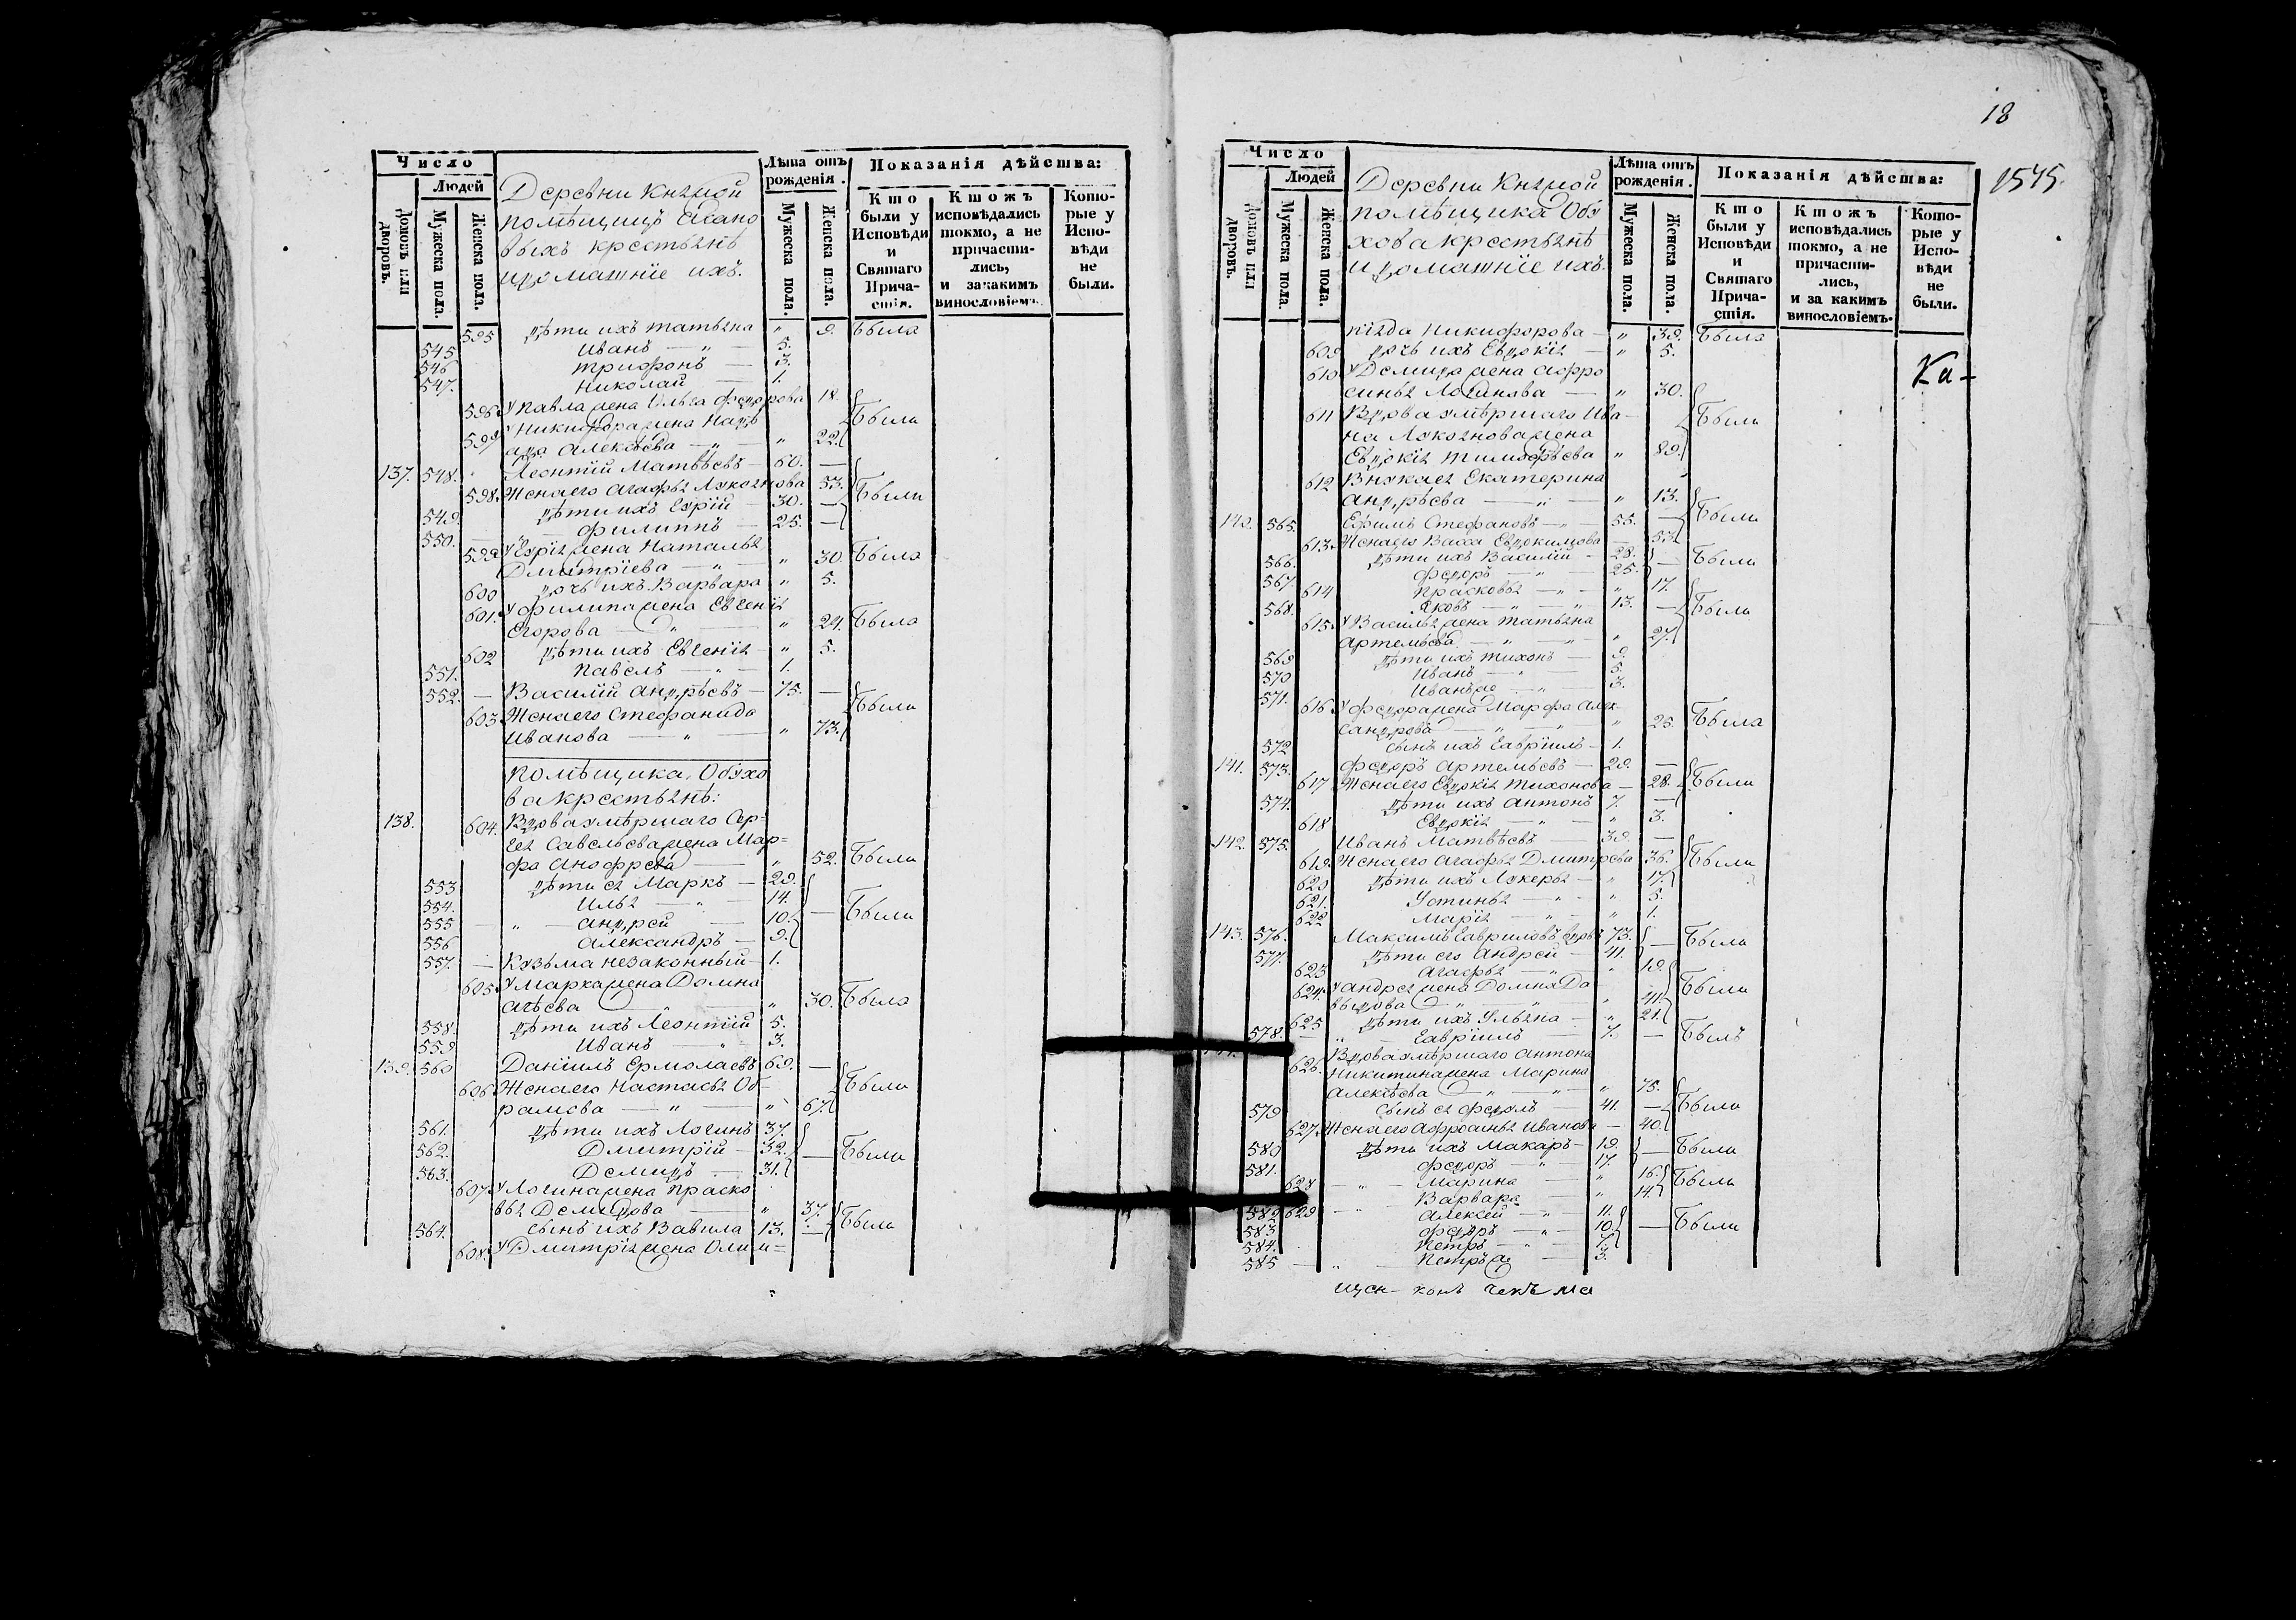 Число
Людей
Домовъ или дворовъ.
Мужеска пола.
Женска пола.
Деревни Княжой
помѣщицъ
выхъ крестьянѣ
и домашніе ихъ.
Лѣта отъ рожденія.
Мужеска пола.
Женска пола.
Показанія дѣйства:
Кто были у Исповѣди и Святаго Причастія.
Ктожъ исповѣдались токмо, а не причастились, и за какимъ винословіемъ.
Которые у Исповѣди не были.
595 дѣти ихъ татьяна " 9. Была
545 Иванъ — " — 5.
546 трифонъ — 3.
547. Николай — 1.
596 У Павла жена Ольга федорова 18.
У Никифора жена Надѣ
597 жда Алексѣева — " — " 22. Были
137. 548. Леонтій Матвѣевъ — 60. —
598. Жена его Агафья Лукоянова 53. Были
549. дѣти ихъ — 30. —
550. филиппъ — 25. —
599 жена Наталья
Дмитріева — " — " 30. Была
600 дочь ихъ Варвара " 5.
601. У филипа жена Евгенія
Егорова — " — " 24. Была
602 дѣти ихъ Евгенія — " 5.
551. Павелъ — " — 1.
552. — Василій Андрѣевъ — 75. —
603 Жена его Стефанида
Иванова — " — " 73. Были
помѣщика Обухо
ва крестьянѣ:
138. 604. Вдова умѣршаго Сер=
гея Савельева жена Мар=
фа Анофрева — " 52. Была
553 дѣти ея Маркъ — 29.
554. Илья — " — 14.
555 — " — Андрей — 10. — Были
556 Александръ — 9.
557. — Кузьма незаконный — 1.
605 У Марка жена Домна
Агѣева — " 30. Была
558. дѣти ихъ Леонтій 5.
559 Иванъ — " — 3.
139. 560 Даніилъ Ермолаевъ 69. —
606 Жена его Настасья
рамова — " — " 67. Были
561. дѣти ихъ Логинъ 37.
562. Дмитрій — 32. — Были
563. Демидъ — 31.
607 У Логина жена Праско
вья Демидова — " 37.
564. сынъ ихъ Вавила 13. — Были
608. У Дмитрія жена Олим=
18
1545.
Число
Людей
Домовъ или дворовъ.
Мужеска пола.
Женска пола.
Деревни Княжой
помѣщика Обу
хова крестьянѣ
и домашніе ихъ.
Лѣта отъ рожденія.
Мужеска пола.
Женска пола.
Показанія дѣйства:
Кто были у Исповѣди и Святаго Причастія.
Ктожъ исповѣдались токмо, а не причастились, и за какимъ винословіемъ.
Которые у Исповѣди не были.
піяда Никифорова — " 39. Была
609 дочь ихъ Евдокія — " 5.
Ка-
610 У Демида жена Афро
синья Логинова — " 30.
611 Вдова умѣршаго Ива- Были
на Лукоянова жена
Евдокія тимофѣева " 89.
612 Внука ея Екатерина
Андрѣева — " — " 13.
140. 565. Ефимъ Стефановъ — " — 55. — Были
613. Жена его Васса Евдокимова — 57.
566. дѣти ихъ Василій — 28. — Были
567. федоръ — " — 25.
614 Прасковья — " — " 17.
568. Яковъ — " — " 13. — Были
615. У Василья жена татьяна
артемьева — " — " — " 27.
569 дѣти ихъ тихонъ — 9.
570 Иванъ — " — 5.
571. Иванъ — " — 3.
616 У федора жена Марфа Алек
сандрова — " — " — " 25. Была
572 сынъ ихъ Гавріилъ — 1.
141. 573. федоръ Артемьевъ — 29. —
617 Жена его Евдокія тихонова — 28. Были
574. дѣти ихъ Антонъ 7. —
618 Евдокія — " — " 3.
142. 575. Иванъ Матвѣевъ — 39 —
619. Жена его Агафья Дмитрева 36. Были
620 дѣти ихъ Лукерья — " 17.
621. Устинья — " — " 5.
622 Марія — " — " 1.
143. 576. Максимъ Гавриловъ вдовъ 73. — Были
577. дѣти его Андрей — 41.
623 Агафья — " — " 19.
624. У Андрея жена Домна Да
выдова — " — " — " 41. Были
625 дѣти ихъ Ульяна — " 21.
578. — " — Гавріилъ — 7. — Былъ
Вдова умѣршаго Антона
626. Никитина жена Марина
Алексѣева — " — " — " 75.
579 сынъ ея федулъ — 41. — Были
627. Жена его Афросинья Иванова — 40.
580 дѣти ихъ Макаръ — 19. — Были
581. федоръ — " — 17.
628 — " — Марина — " 16. Были
629. — " — Варвара — " 14.
582 Алексей — " — 11.
583 федоръ — " — 10. — Были
584. Петръ — " — 7.
585 — " — Петръ — 3.